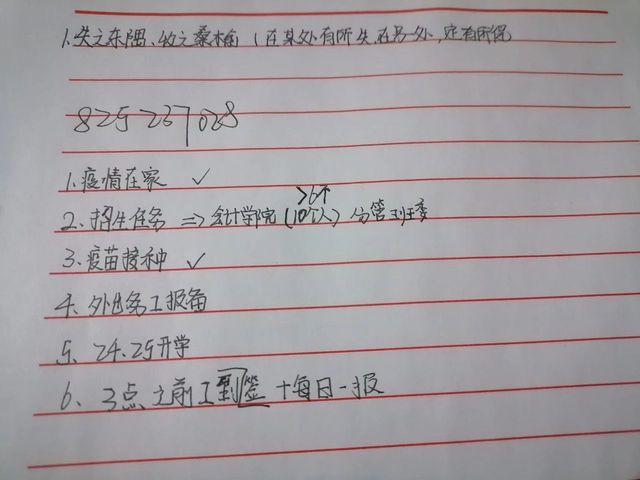 1.失之东隅、收之桑榆（在某处有所失,在另一处,定有所得
825 237 028
1.疫情在家 ✓
>6个
2.招生任务 => 会计学院(10个人) 分管班委
3.疫苗接种 ✓
4.外出务工报备
5、24.25开学
6、3点之前工到签+每日一报